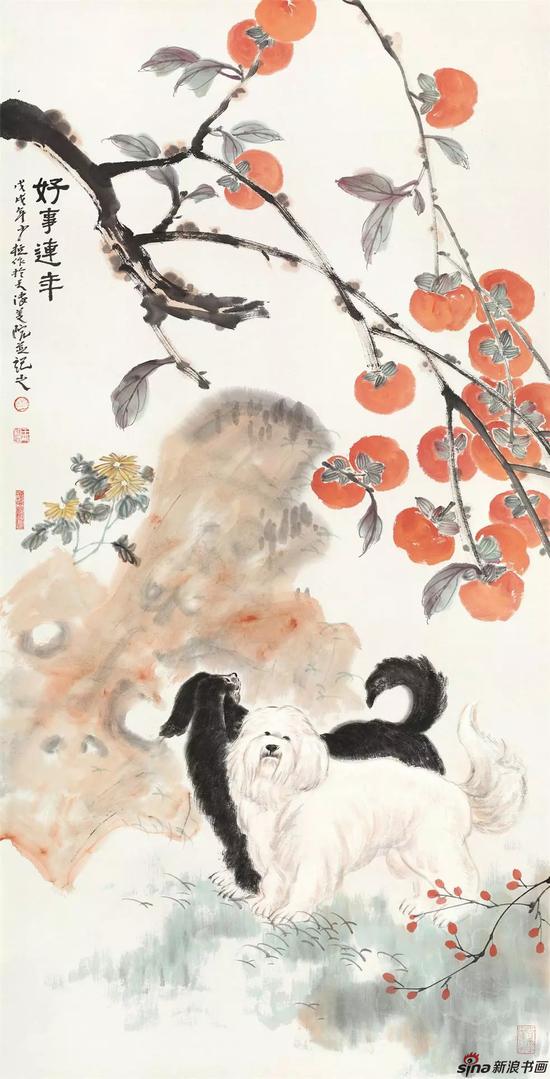 好事連年
戊戌年少桓作於天津美院並記之
sina新浪书画